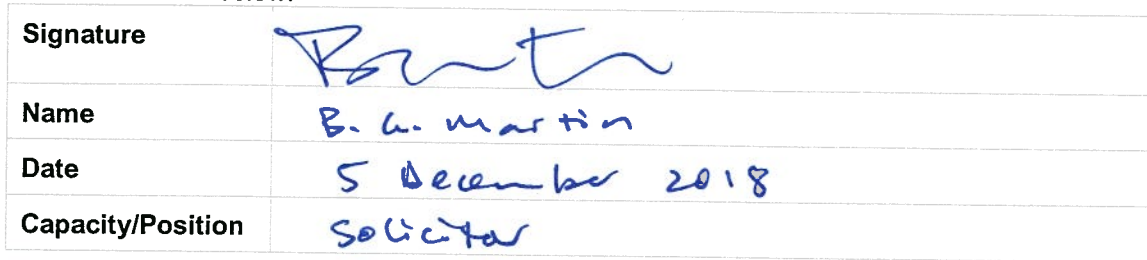 Signature
Name B. G. Martin
Date 5 December 2018
Capacity/Position Solicitor